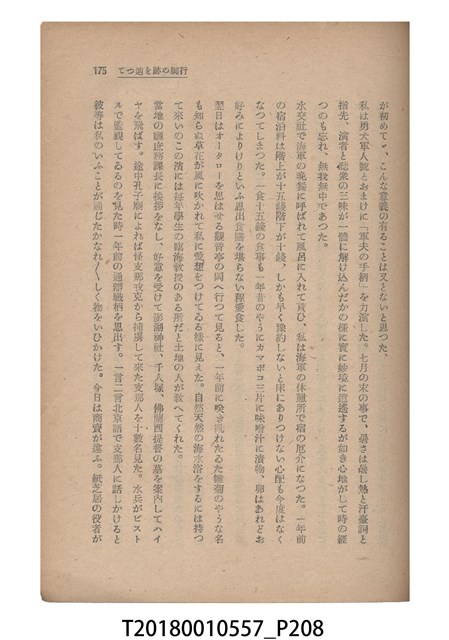 行脚の跡を追つて 175
が初めてゞ、こんな意義の有ることは又とないと思つた。
私は勇犬軍人號とおまけに「軍夫の手柄」を力演した。七月の末の事で、暑さは嚴し熱と汗臺詞と
指先、演者と聽衆の三昧が一體に解け込んだかの樣に實に妙境に逍遙するが如き心地がして時の經
つのも忘れ、無我無中であつた。
水交社で海軍の晩餐に呼ばれて風呂に入れて貰ひ、私は海軍の休憩所で宿の厄介になつた。一年前
の宿泊料は階上が十五錢階下が十錢、しかも早く豫約しないと床にありつけない心配も今度はなく
なつてしまつた。一食十五錢の食事も一年昔のやうにカマボコ三片に味噌汁に漬物、卵はあれどお
好みによりけりといふ思出食膳を堪らない程愛食した。
翌日はオータローを思はせる觀音亭の岡へ行つて見ると、一年前に喚き亂れたゐた雛菊のやうな名
も知らぬ草花が風に吹かれて私に愛想をつけてゐる樣に見えた。自然天然の海水浴をするには持つ
て來いのこの濱には毎年學生の臨海教授のある所だと土地の人が教へてくれた。
當地の廳庶務課長に挨拶をなし、好意を受けて澎湖神社、千人塚、佛蘭西提督の墓を案內してハイ
ヤを飛ばす。途中孔子廟によれば怪支那戎克から捕虜して來た支那人を十數名見た。水兵がピスト
ルで監視してゐるのを見た時一年前の通譯職柄を思出す。一言二言北京語で支那人に話しかけると
彼等は私のいふことが通じたかなれ〱しく物をいひかけた。今日は商賣が違ふ。紙芝居の役者が
T20180010557_P208